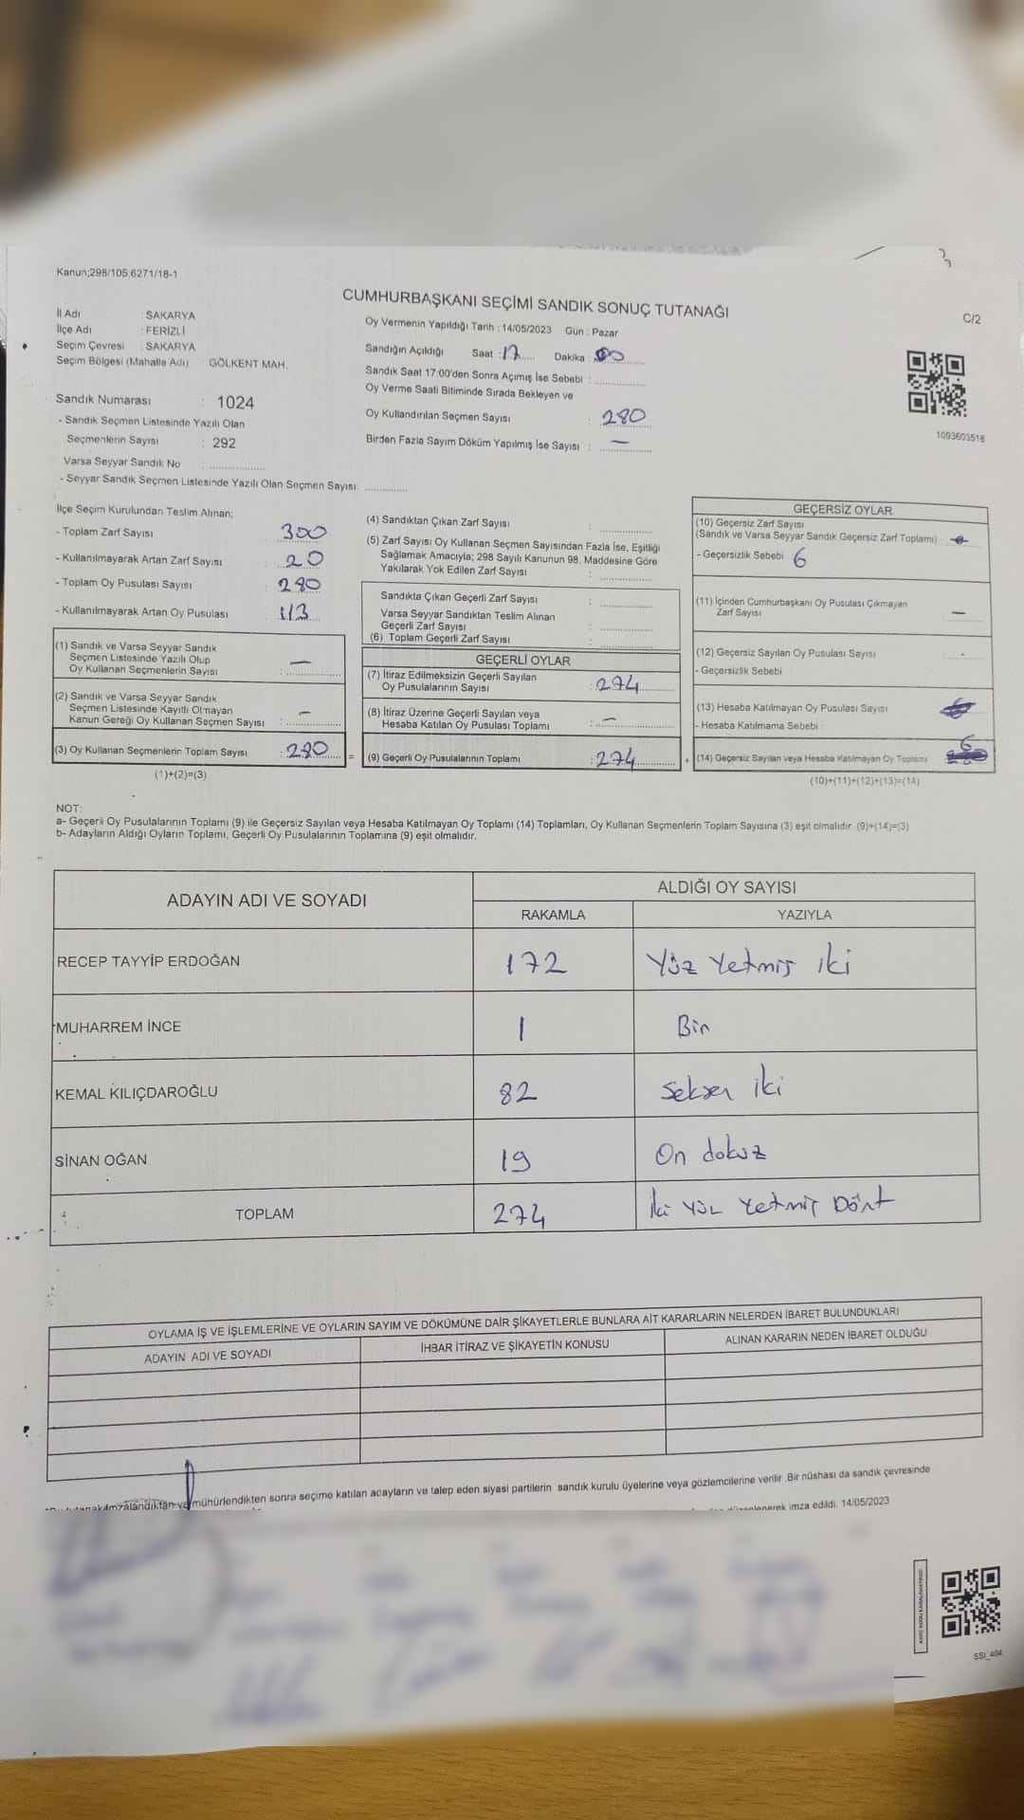 Kanun;298/105,6271/18-1
CUMHURBAŞKANI SEÇİMİ SANDIK SONUÇ TUTANAĞI
C/2
İl Adı : SAKARYA
İlçe Adı : FERİZLİ
Seçim Çevresi : SAKARYA
Seçim Bölgesi (Mahalle Adı) GÖLKENT MAH.
Oy Vermenin Yapıldığı Tarih : 14/05/2023 Gün : Pazar
Sandığın Açıldığı Saat : 17 Dakika 00
Sandık Saat 17:00'den Sonra Açımış İse Sebebi :
Oy Verme Saati Bitiminde Sırada Bekleyen ve
Oy Kullandırılan Seçmen Sayısı : 280
Birden Fazla Sayım Döküm Yapılmış İse Sayısı : —
1093603518
Sandık Numarası : 1024
- Sandık Seçmen Listesinde Yazılı Olan
Seçmenlerin Sayısı : 292
Varsa Seyyar Sandık No :
- Seyyar Sandık Seçmen Listesinde Yazılı Olan Seçmen Sayısı
İlçe Seçim Kurulundan Teslim Alınan;
- Toplam Zarf Sayısı 300
- Kullanılmayarak Artan Zarf Sayısı : 20
- Toplam Oy Pusulası Sayısı : 280
- Kullanılmayarak Artan Oy Pusulası : 113
(1) Sandık ve Varsa Seyyar Sandık
Seçmen Listesinde Yazılı Olup
Oy Kullanan Seçmenlerin Sayısı : —
(2) Sandık ve Varsa Seyyar Sandık
Seçmen Listesinde Kayıtlı Olmayan
Kanun Gereği Oy Kullanan Seçmen Sayısı : —
(3) Oy Kullanan Seçmenlerin Toplam Sayısı : 280
(1)+(2)=(3)
(4) Sandıktan Çıkan Zarf Sayısı :
(5) Zarf Sayısı Oy Kullanan Seçmen Sayısından Fazla İse, Eşitliği
Sağlamak Amacıyla; 298 Sayılı Kanunun 98. Maddesine Göre
Yakılarak Yok Edilen Zarf Sayısı :
Sandıkta Çıkan Geçerli Zarf Sayısı :
Varsa Seyyar Sandıktan Teslim Alınan
Geçerli Zarf Sayısı :
(6) Toplam Geçerli Zarf Sayısı :
GEÇERLİ OYLAR
(7) İtiraz Edilmeksizin Geçerli Sayılan
Oy Pusulalarının Sayısı : 274
(8) İtiraz Üzerine Geçerli Sayılan veya
Hesaba Katılan Oy Pusulası Toplamı : —
= (9) Geçerli Oy Pusulalarının Toplamı : 274
GEÇERSİZ OYLAR
(10) Geçersiz Zarf Sayısı
(Sandık ve Varsa Seyyar Sandık Geçersiz Zarf Toplamı)
- Geçersizlik Sebebi 6
(11) İçinden Cumhurbaşkanı Oy Pusulası Çıkmayan
Zarf Sayısı —
(12) Geçersiz Sayılan Oy Pusulası Sayısı
- Geçersizlik Sebebi
(13) Hesaba Katılmayan Oy Pusulası Sayısı
- Hesaba Katılmama Sebebi
+ (14) Geçersiz Sayılan veya Hesaba Katılmayan Oy Toplamı 6
(10)+(11)+(12)+(13)=(14)
NOT:
a- Geçerli Oy Pusulalarının Toplamı (9) ile Geçersiz Sayılan veya Hesaba Katılmayan Oy Toplamı (14) Toplamları, Oy Kullanan Seçmenlerin Toplam Sayısına (3) eşit olmalıdır. (9)+(14)=(3)
b- Adayların Aldığı Oyların Toplamı, Geçerli Oy Pusulalarının Toplamına (9) eşit olmalıdır.
ADAYIN ADI VE SOYADI
ALDIĞI OY SAYISI
RAKAMLA YAZIYLA
RECEP TAYYİP ERDOĞAN 172 Yüz Yetmiş iki
MUHARREM İNCE 1 Bin
KEMAL KILIÇDAROĞLU 82 Seksen iki
SİNAN OĞAN 19 On dokuz
TOPLAM 274 İki Yüz Yetmiş Dört
OYLAMA İŞ VE İŞLEMLERİNE VE OYLARIN SAYIM VE DÖKÜMÜNE DAİR ŞİKAYETLERLE BUNLARA AİT KARARLARIN NELERDEN İBARET BULUNDUKLARI
ADAYIN ADI VE SOYADI İHBAR İTİRAZ VE ŞİKAYETİN KONUSU ALINAN KARARIN NEDEN İBARET OLDUĞU
mühürlendikten sonra seçime katılan adayların ve talep eden siyasi partilerin sandık kurulu üyelerine veya gözlemcilerine verilir. Bir nüshası da sandık çevresinde
imza edildi. 14/05/2023